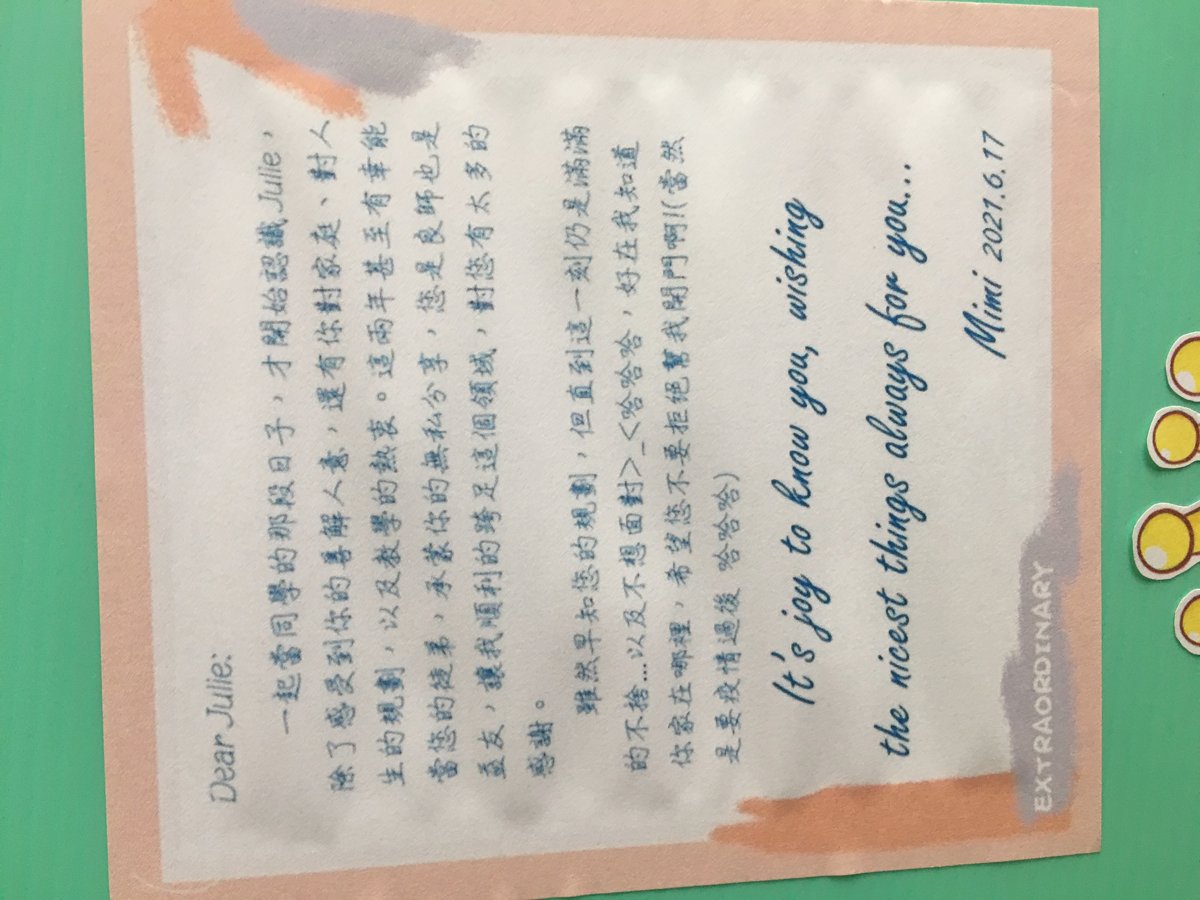 Dear Julie:
一起當同學的那段日子，才開始認識Julie，
除了感受到你的善解人意，還有你對家庭、對人
生的規劃，以及教學的熱衷。這兩年甚至有幸能
當您的徒弟，承蒙你的無私分享，您是良師也是
益友，讓我順利的跨足這個領域，對您有太多的
感謝。
雖然早知您的規劃，但直到這一刻仍是滿滿
的不捨...以及不想面對>_<哈哈哈，好在我知道
你家在哪裡，希望您不要拒絕幫我開門啊!(當然
是要疫情過後 哈哈哈)
It's joy to know you, wishing
the nicest things always for you...
Mimi 2021.6.17
EXTRAORDINARY